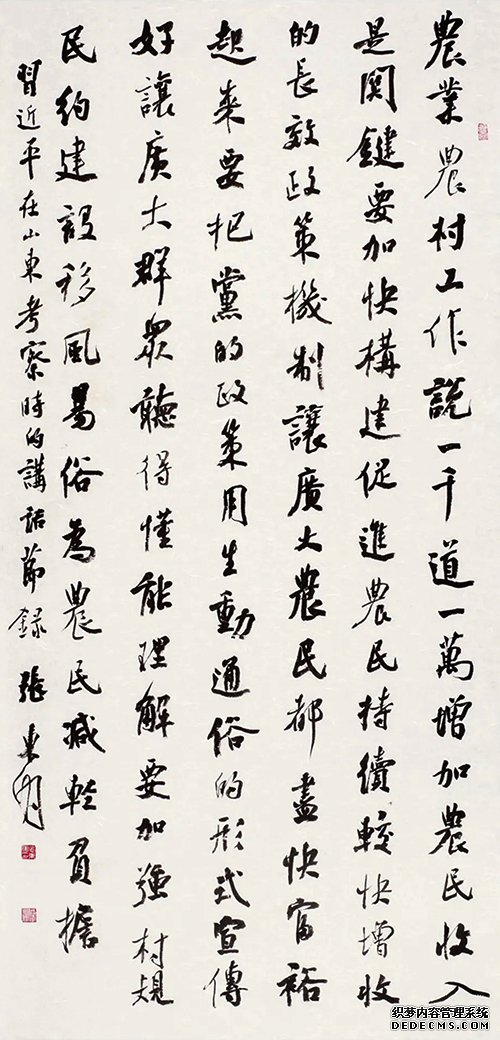 農業農村工作説一千道一萬增加農民收入
是関鍵要加快構建促進農民持續較快增收
的長效政策機制讓廣大農民都盡快富裕
起來要把黨的政策用生動通俗的形式宣傳
好讓廣大群眾聽得懂能理解要加强村規
民約建設移風易俗為農民减輕負擔
習近平在山東考察時的講話節録 張東明
织梦内容管理系统
DEDECMS.COM